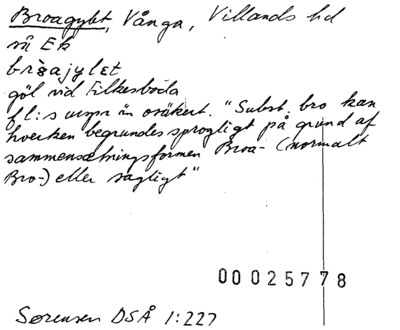 Broagylet, Vånga, Villands hd
nv Ek
brͻajylet
göl vid Filkesboda
fl:s urspr är osäkert. "Subst. bro kan
hverken begrundes sprogligt på grund af
sammensætningsformen Broa- (normalt
Bro-) eller sagligt"
00025778
Sørensen DSÅ 1:227